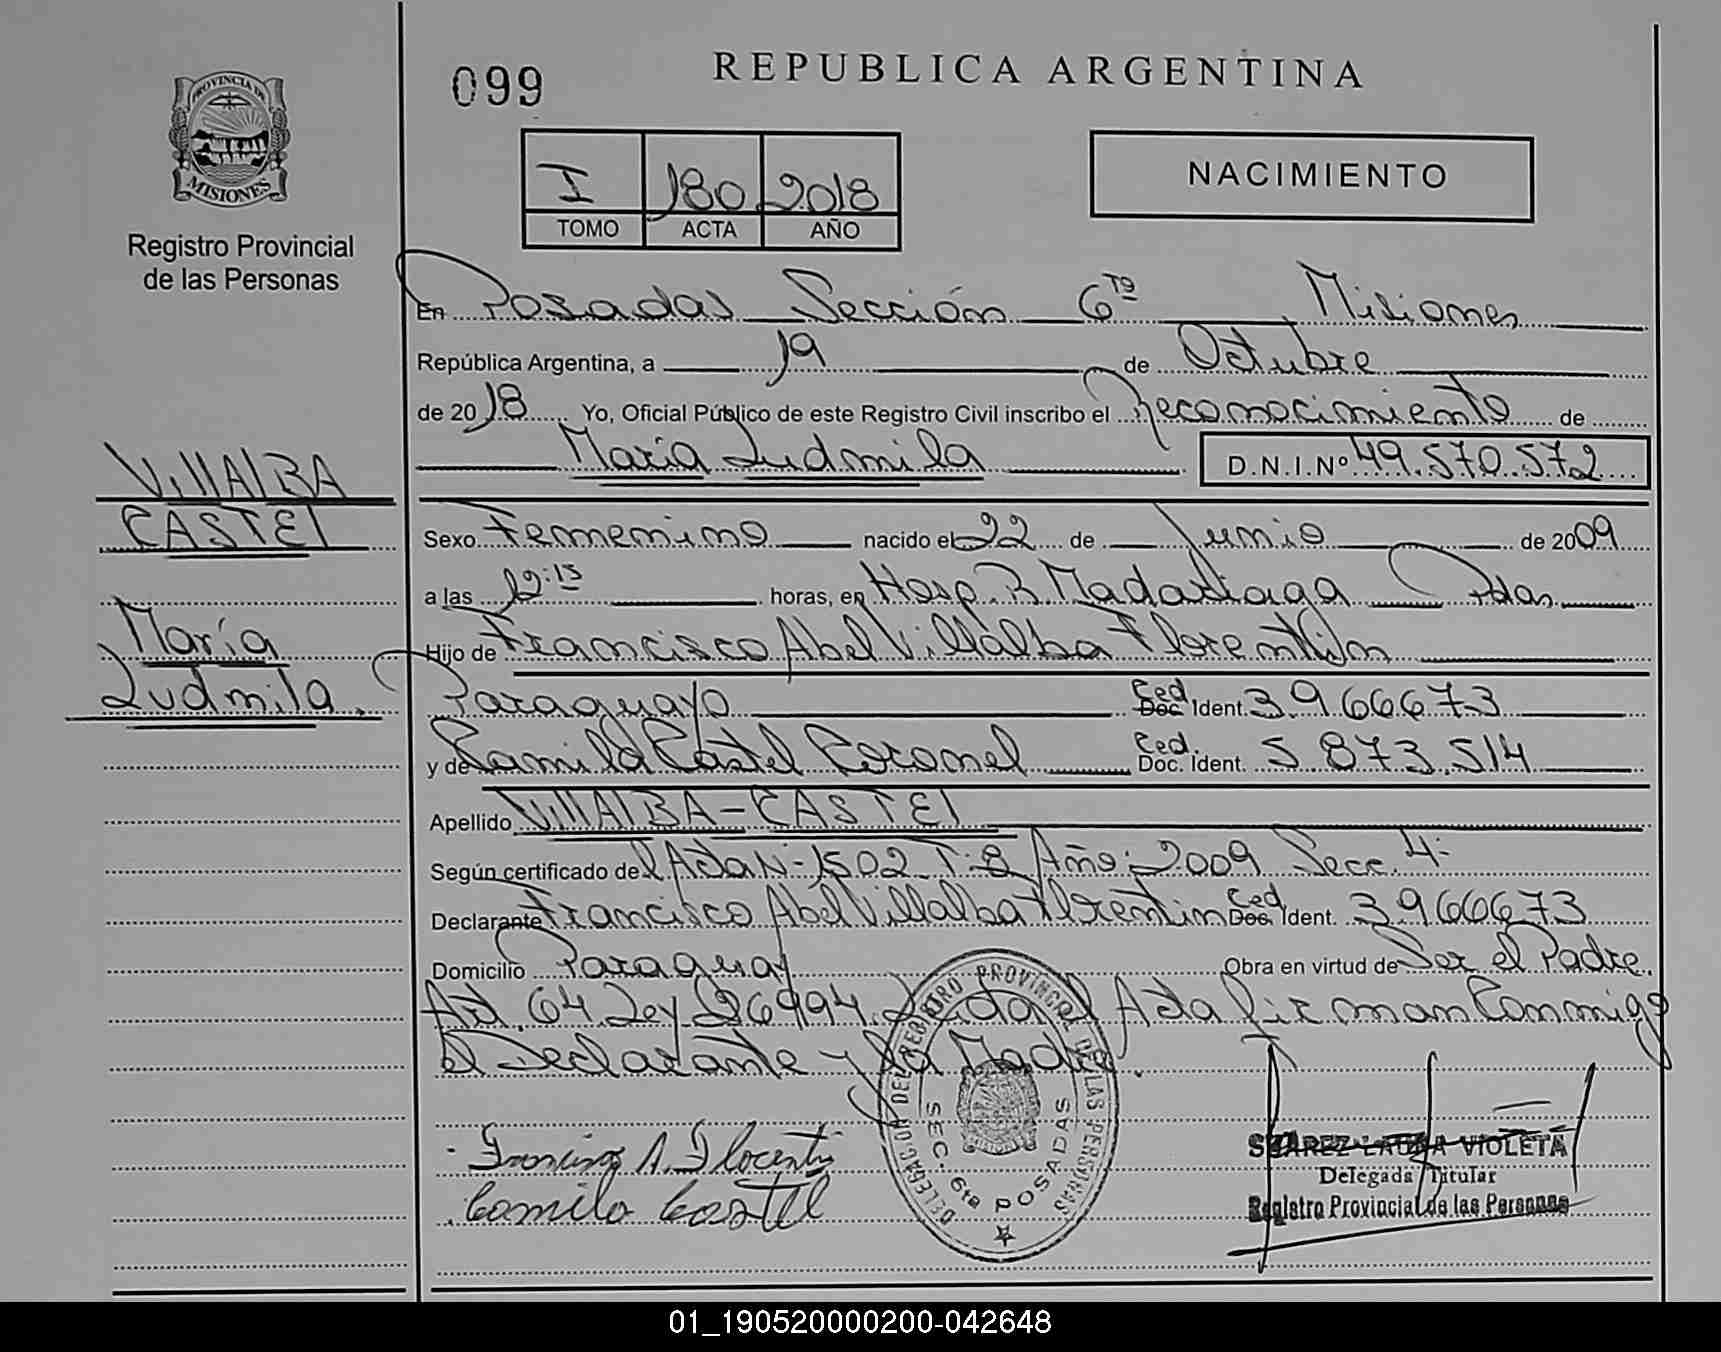 099
REPUBLICA ARGENTINA
PROVINCIA DE
MISIONES
Registro Provincial
de las Personas
I 180 2018
TOMO ACTA AÑO
NACIMIENTO
En Posadas Sección 6ta Misiones
República Argentina, a 19 de Octubre
de 2018 Yo, Oficial Público de este Registro Civil inscribo el Reconocimiento de
María Ludmila D.N.I.Nº 49.570.572
VILLALBA
CASTEL
María
Ludmila.
Sexo Femenino nacido el 22 de Junio de 2009
a las 12:15 horas, en Hosp. R. Madariaga Pdas.
Hijo de Francisco Abel Villalba Florentín
Paraguayo Ced. Doc. Ident. 3966673
y de Camila Castel Coronel Ced. Doc. Ident. 5.873.514
Apellido VILLALBA-CASTEL
Según certificado del Acta N- 1502 T: 8 Año: 2009 Secc. 4-
Declarante Francisco Abel Villalba Florentín Ced Doc. Ident. 3966673
Domicilio Paraguay Obra en virtud de Ser el Padre.
Art. 64 Ley 26994. el Acta firman Conmigo
el Declarante y la Madre.
DELEGACIÓN DEL REGISTRO PROVINCIAL DE LAS PERSONAS
SEC. 6ta POSADAS
Francisco A. Florentin
Camila Castel
SUAREZ LAURA VIOLETA
Delegada Titular
Registro Provincial de las Personas
01_190520000200-042648